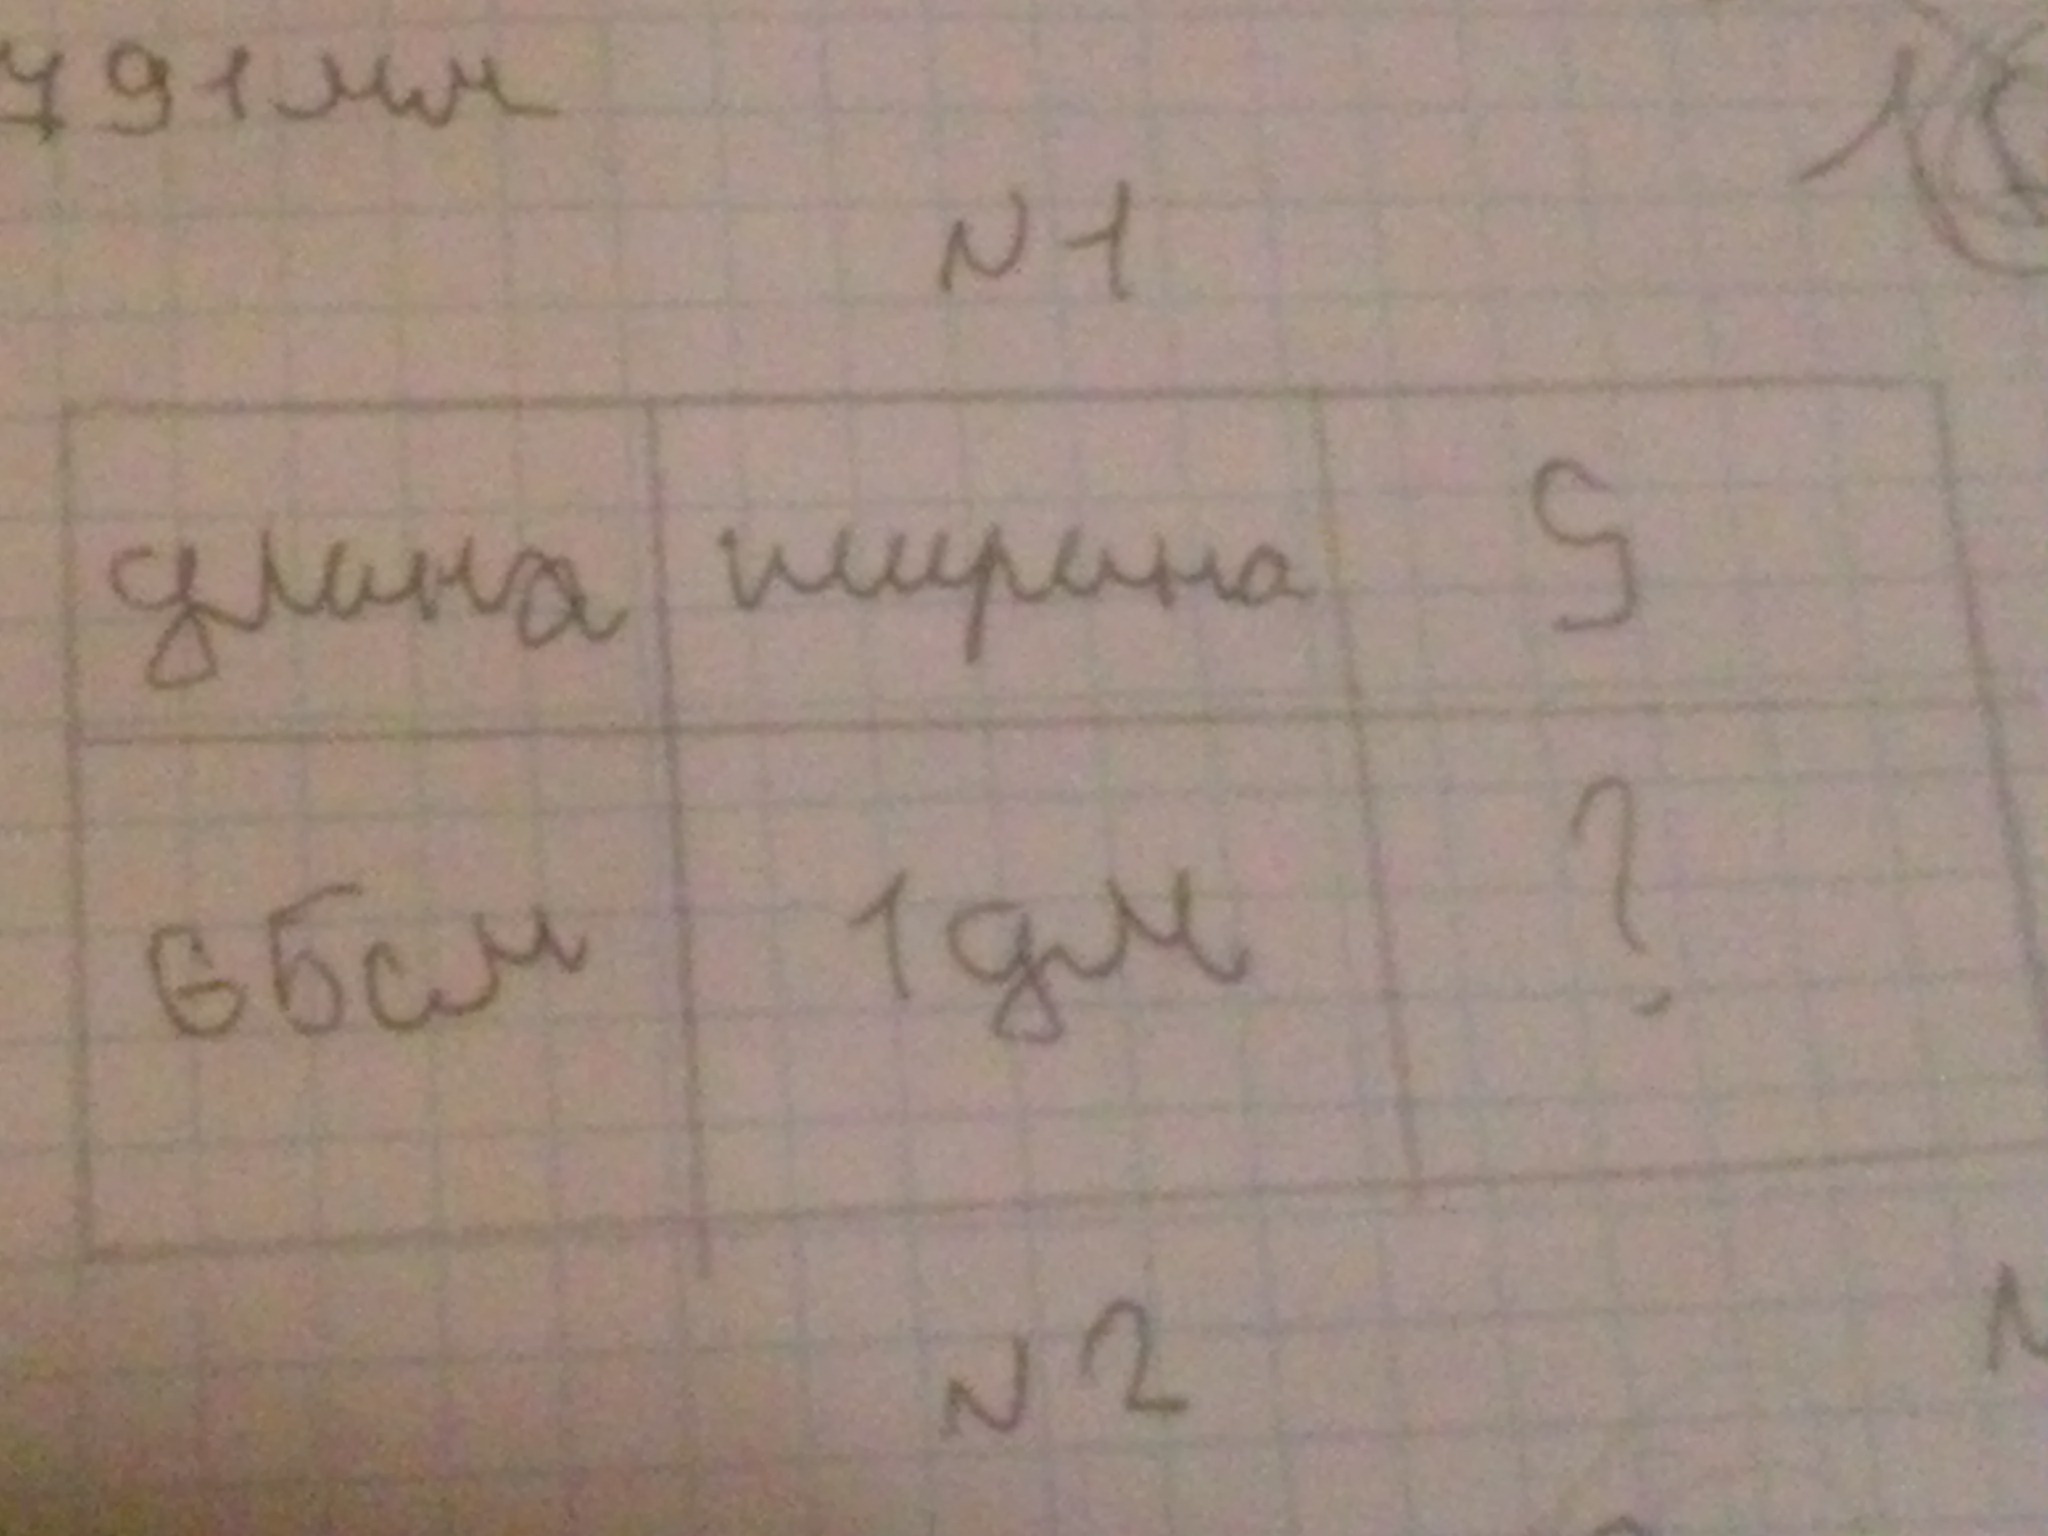 791мм
N1
длина ширина S
65см 1дм ?
N2